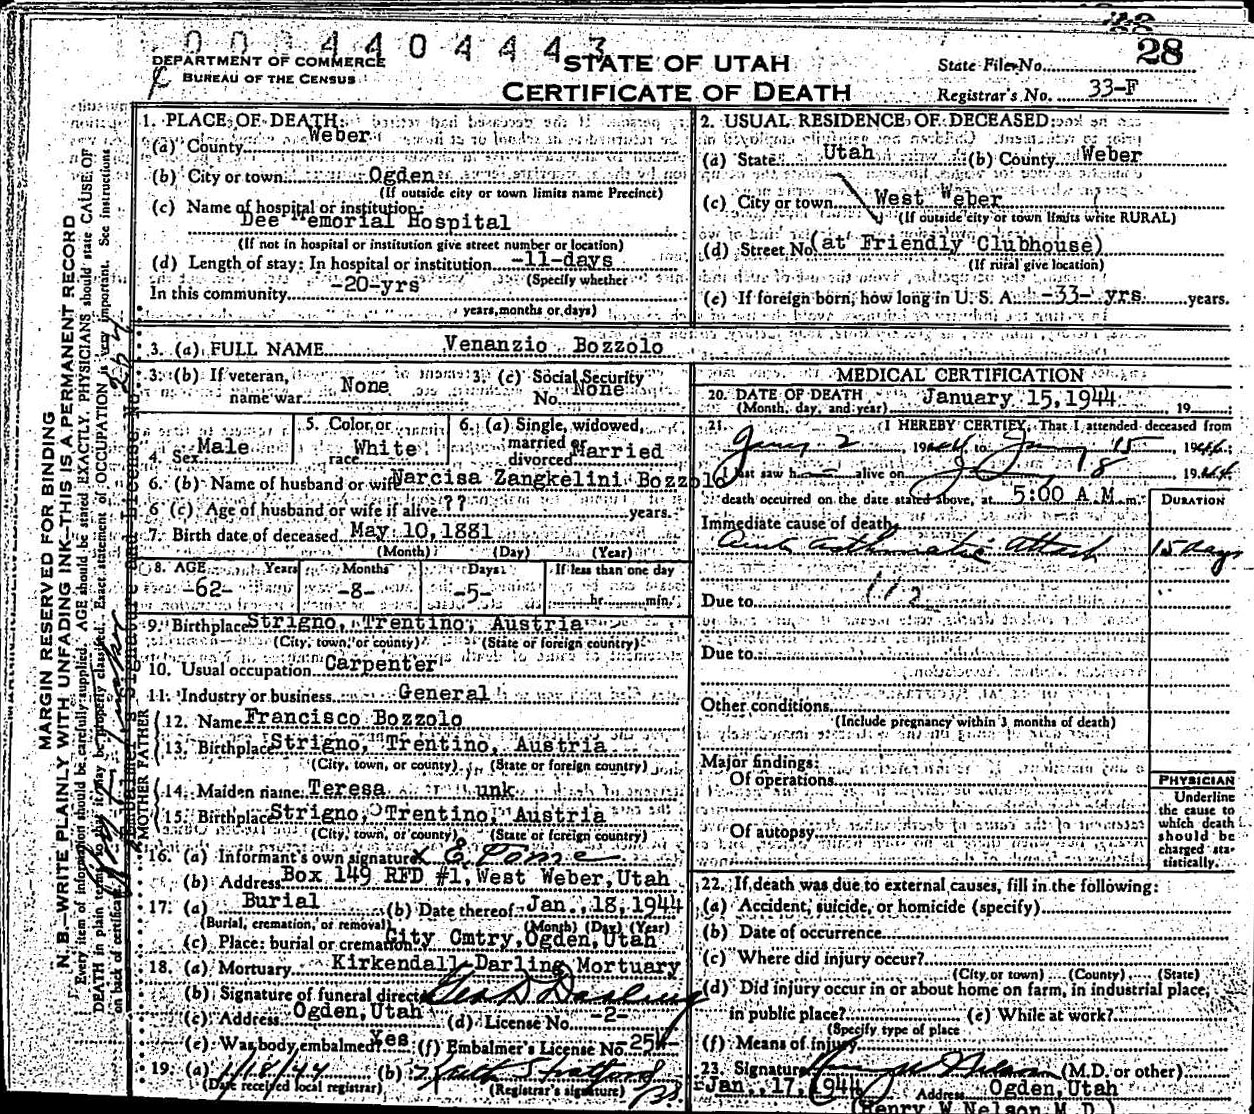 0 0 3 4 4 0 4 4 4 3
28
DEPARTMENT OF COMMERCE
BUREAU OF THE CENSUS
STATE OF UTAH
CERTIFICATE OF DEATH
State File No.
Registrar's No. 33-F
MARGIN RESERVED FOR BINDING
N. B.—WRITE PLAINLY WITH UNFADING INK—THIS IS A PERMANENT RECORD
Every item of information should be carefully supplied. AGE should be stated EXACTLY. PHYSICIANS should state CAUSE OF
DEATH in plain terms so that it may be properly classified. Exact statement of OCCUPATION is very important. See instructions
on back of certificate.
1. PLACE OF DEATH:
(a) County Weber
(b) City or town Ogden
(If outside city or town limits name Precinct)
(c) Name of hospital or institution:
Dee Memorial Hospital
(If not in hospital or institution give street number or location)
(d) Length of stay: In hospital or institution -11-days
(Specify whether
In this community -20-yrs
years, months or days)
2. USUAL RESIDENCE OF DECEASED:
(a) State Utah (b) County Weber
(c) City or town West Weber
(If outside city or town limits write RURAL)
(d) Street No. (at Friendly Clubhouse)
(If rural give location)
(e) If foreign born, how long in U. S. A. -33- yrs. years.
3. (a) FULL NAME Venanzio Bozzolo
3. (b) If veteran, name war None
3. (c) Social Security No. None
4. Sex Male
5. Color or race White
6. (a) Single, widowed, married or divorced Married
6. (b) Name of husband or wife Narcisa Zangkelini Bozzolo
6 (c) Age of husband or wife if alive ?? years.
7. Birth date of deceased May 10, 1881
(Month) (Day) (Year)
8. AGE Years Months Days If less than one day
-62- -8- -5- hr. min.
9. Birthplace Strigno, Trentino, Austria
(City, town, or county) (State or foreign country)
10. Usual occupation Carpenter
11. Industry or business General
FATHER
12. Name Francisco Bozzolo
13. Birthplace Strigno, Trentino, Austria
(City, town, or county) (State or foreign country)
MOTHER
14. Maiden name Teresa unk
15. Birthplace Strigno, Trentino, Austria
(City, town, or county) (State or foreign country)
16. (a) Informant's own signature x E. Tome
(b) Address Box 149 RFD #1, West Weber, Utah
17. (a) Burial (b) Date thereof Jan., 18, 1944
(Burial, cremation, or removal) (Month) (Day) (Year)
(c) Place: burial or cremation City Cmtry, Ogden, Utah
18. (a) Mortuary Kirkendall-Darling Mortuary
(b) Signature of funeral director Geo D Darling
(c) Address Ogden, Utah (d) License No. -2-
(e) Was body embalmed? Yes (f) Embalmer's License No. -254-
19. (a) 1/18/44 (b) Stratford
(Date received local registrar) (Registrar's signature)
MEDICAL CERTIFICATION
20. DATE OF DEATH January 15, 1944, 19
(Month, day, and year)
21. I HEREBY CERTIFY, That I attended deceased from
Jany 2, 1944, to Jany 15, 1944;
I last saw h alive on 1944
death occurred on the date stated above, at 5:00 A.M. m.
DURATION
Immediate cause of death
Acute asthmatic attack 15 days
Due to 112
Due to
Other conditions
(Include pregnancy within 3 months of death)
Major findings:
Of operations
Of autopsy
PHYSICIAN
Underline
the cause to
which death
should be
charged sta-
tistically.
22. If death was due to external causes, fill in the following:
(a) Accident, suicide, or homicide (specify)
(b) Date of occurrence
(c) Where did injury occur?
(City or town) (County) (State)
(d) Did injury occur in or about home on farm, in industrial place,
in public place? (e) While at work?
(Specify type of place
(f) Means of injury
23. Signature Henry W Nelson (M.D. or other)
Jan., 17, 1944 Address Ogden, Utah
(Henry W Nelson, M.D.)